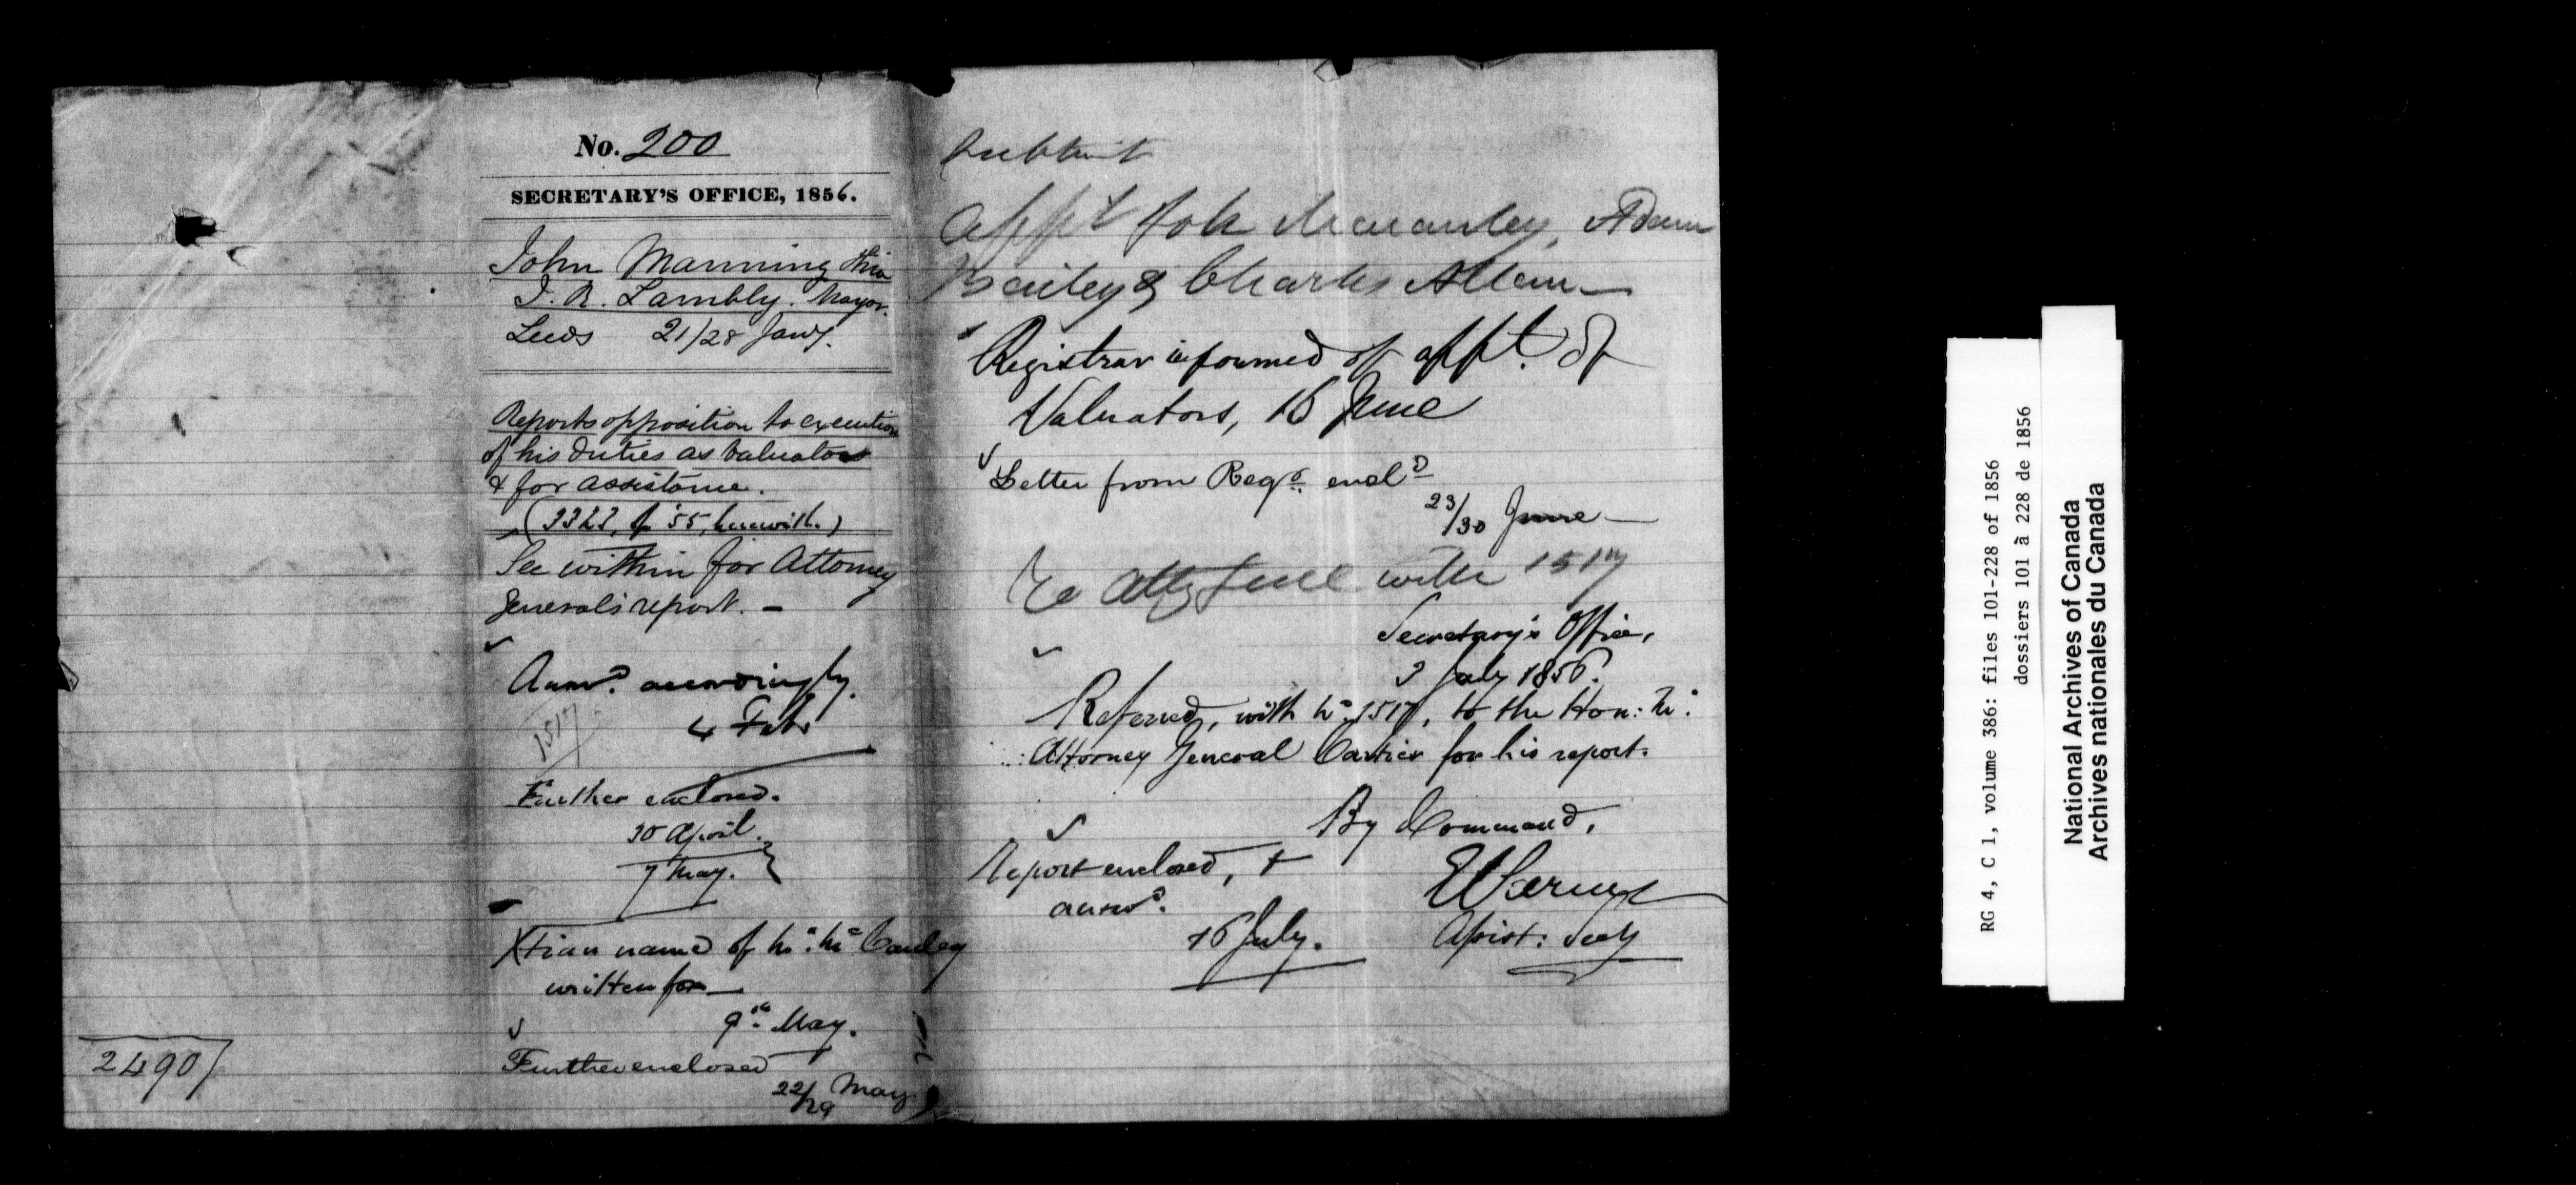 No. 200
SECRETARY'S OFFICE, 1856.
John Manning thro
J. R. Lambly. Mayor.
Leeds 21/28 Jany.
Reports opposition to execution
of his duties as Valuator
& for assistance.
of '55, herewith.)
See within for Attorney
General's report. –
Answd. accordingly.
4 Feb
1517
Further enclosed.
30 April.
7 May.
Xtian name of Mr. McCauley
written for —
9th May.
Further enclosed
22/29 May
2490
Submit
appt Macauley, Adam
Bailey & Charles Allan —
Registrar informed of appt. of
Valuators, 16 June
Letter from Regr. encld
23/30 June —
To Atty Genl with 1517
Secretary's Office,
3 July 1856.
Referred, with No. 1517, to the Hon: Mr.
Attorney General Cartier for his report.
By Command,
Report enclosed, +
answd.
16 July.
Assist: Secy
RG 4, C 1, volume 386: files 101-228 of 1856
dossiers 101 à 228 de 1856
National Archives of Canada
Archives nationales du Canada